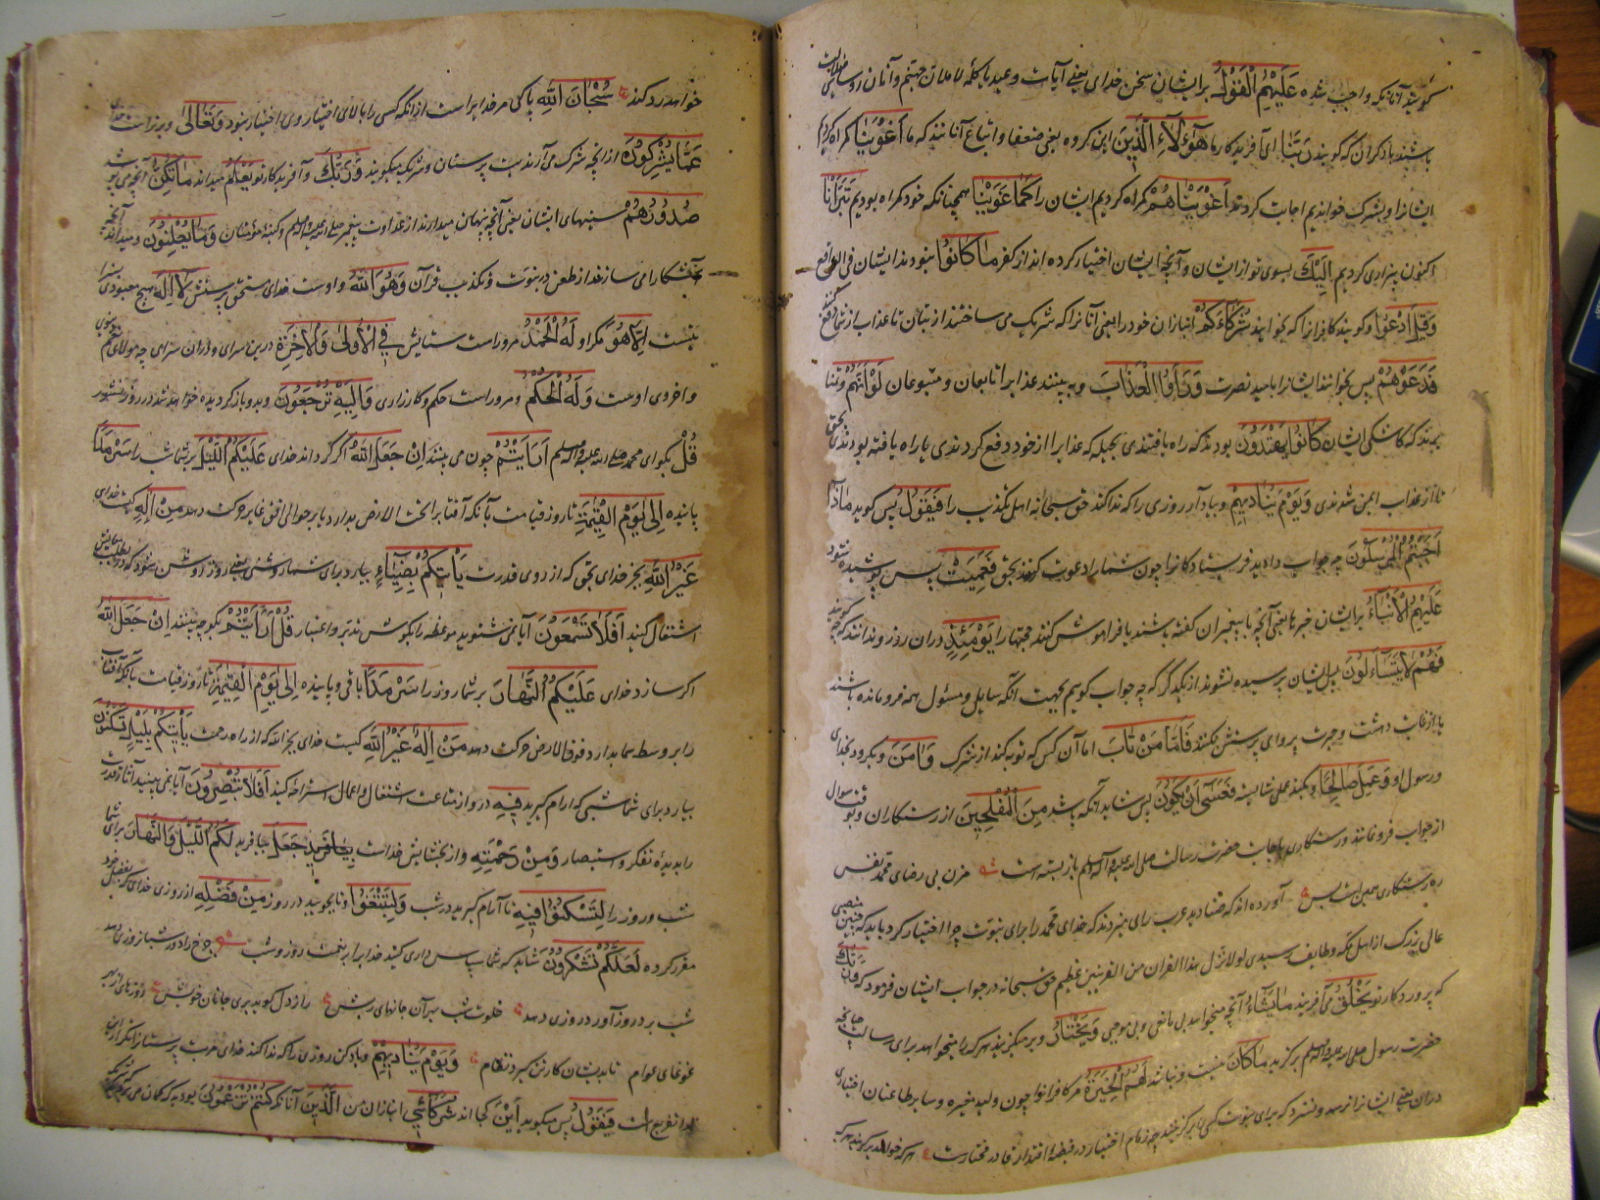 گویند آنانکه واجب شده عَلَيْهِمُ الْقَوْلُ برایشان سخن خدای یعنی آیات وعید یا کلمهٔ لاملان جهنم و آنان رؤسای
باشند بادیگران گویند رَبَّنَا ای آفریدگار ما هَٰٓؤُلَآءِ الَّذِينَ این گروه یعنی ضعفا و اتباع آنانند که ما أَغْوَيْنَا گمراه کردیم
ایشانرا و بشرک خواندیم اجابت کردند أَغْوَيْنَاهُمْ گمراه کردیم ایشان را كَمَا غَوَيْنَا همچنانکه خود گمراه بودیم تَبَرَّأْنَا
اکنون بیزاری کردیم إِلَيْكَ بسوی تو از ایشان و آنچه ایشان اختیار کرده اند از کفر مَا كَانُوا نبودند ایشان فی الواقع
وَقِيلَ ادْعُوا و گویند کافرانرا که بخوانید شُرَكَاءَكُمْ انبازان خود را یعنی آنانرا که شریک می ساختند از بتان تا عذاب از شما دفع کنند
فَدَعَوْهُمْ پس بخوانند ایشانرا بامید نصرت وَرَأَوُا الْعَذَابَ و به بینند عذاب را تابعان و متبوعان لَوْ أَنَّهُمْ وتمنا
برند که کاشکی ایشان كَانُوا يَهْتَدُونَ بودند که راه یافتندی بحیله که عذاب را از خود دفع کردندی یا راه یافته بودندی بحق
تا از عذاب ایمن شدندی وَيَوْمَ يُنَادِيهِمْ و یاد آر روزی را که ندا کند حق سبحانه اهل تکذیب را فَيَقُولُ پس گوید مَاذَا
أَجَبْتُمُ الْمُرْسَلِينَ چه جواب دادید فرستادگانرا چون شما را دعوت کردند بحق فَعَمِيَتْ پس پوشیده شود
عَلَيْهِمُ الْأَنْبَاءُ برایشان خبرها یعنی آنچه با پیغمبران گفته باشند یا فراموش کنند حجتها را يَوْمَئِذٍ دران روز و ندانند که چه گویند
فَهُمْ لَا يَتَسَاءَلُونَ پس ایشان پرسیده نشوند از یکدیگر که چه جواب گوییم بجهت آنکه سایل و مسئول همه فرومانده باشند
یا از غایت دهشت و حیرت پروای پرسش نکنند فَأَمَّا مَنْ تَابَ اما آن کس که توبه کند از شرک وَآمَنَ و بگرود بخدای
و رسول او وَعَمِلَ صَالِحًا و بکند عملی شایسته فَعَسَى أَنْ يَكُونَ پس شاید آنکه باشد مِنَ الْمُفْلِحِينَ از رستگاران و بوقت سوال
از جواب فرونمانند و رستگاری باجابت حضرت رسالت صلی الله علیه و آله وسلم باز بسته است مزن بی رضای محمد نفس
ره رستگاری همین است و بس آورده اند که صنادید عرب رای میزدند که خدای محمد را برای نبوت چرا اختیار کرد باید که چنین منصبی
عالی بزرگی از اهل مکه و طایف رسیدی لولا نزل هذا القران من القریتین عظیم حق سبحانه در جواب ایشان فرمود که وَرَبُّكَ
که پروردگار تو يَخْلُقُ می آفریند مَا يَشَاءُ آنچه میخواهد بی مانعی و بی موجبی وَيَخْتَارُ و بر میگزیند هر کرا میخواهد برای رسالت چنانچه
حضرت رسول صلی الله علیه و آله وسلم برگزید مَا كَانَ نیست و نباشد لَهُمُ الْخِيَرَةُ مر کافرانرا چون ولید مغیره و سایر طاعنان اختیاری
دران یعنی ایشانرا نرسد و نسزد که برای نبوت کسی را برگزینند چه زمام اختیار در قبضهٔ اقتدار قادر مختارست هر که خواهد
خواهد رد کند سُبْحَانَ اللَّهِ پاکی مر خدایراست از آنکه کسی را بالای اختیار وی اختیار بود وَتَعَالَى و برتر است خدای
عَمَّا يُشْرِكُونَ از آنچه شرک می آرند بت پرستان و شریک میگویند وَرَبُّكَ و آفریدگار تو يَعْلَمُ میداند مَا تُكِنُّ آنچه می پوشد
صُدُورُهُمْ سینهای ایشان یعنی آنچه پنهان میدارند از عداوت پیغمبر صلی الله علیه وآله وسلم و کینهٔ مؤمنان وَمَا يُعْلِنُونَ و میداند آنچه
آشکارا می سازند از طعن در نبوت و تکذیب قرآن وَهُوَ اللَّهُ و اوست خدای مستحق پرستش لَا إِلَٰهَ هیچ معبودی سزا
نیست إِلَّا هُوَ مگر او لَهُ الْحَمْدُ مر وراست ستایش فِي الْأُولَى وَالْآخِرَةِ درین سرای و دران سرای چه مولای نعم دنیوی
و اخروی اوست وَلَهُ الْحُكْمُ و مر وراست حکم و کارزاری وَإِلَيْهِ تُرْجَعُونَ و بدو بازگردیده خواهید شد در روز نشور
قُلْ بگو ای محمد صلی الله علیه و آله وسلم أَرَأَيْتُمْ چون می بینید إِنْ جَعَلَ اللَّهُ اگر گرداند خدای عَلَيْكُمُ اللَّيْلَ بر شما شب را سَرْمَدًا
پاینده إِلَى يَوْمِ الْقِيَامَةِ تا روز قیامت بآنکه آفتاب را تحت الارض بدارد یا بر حوالی افق غایر حرکت دهد مَنْ إِلَٰهٌ کیست خدای
غَيْرُ اللَّهِ بجز خدای بحق که از روی قدرت يَأْتِيكُمْ بِضِيَاءٍ بیارد برای شما روشنی یعنی روز روشن شود که در و بطلب معایش
اشتغال کنید أَفَلَا تَسْمَعُونَ آیا نمی شنوید موعظه را بگوش تدبر و اعتبار قُلْ أَرَأَيْتُمْ بگو چه بینید إِنْ جَعَلَ اللَّهُ
اگر سازد خدای عَلَيْكُمُ النَّهَارَ بر شما روز را سَرْمَدًا باقی و پاینده إِلَى يَوْمِ الْقِيَامَةِ تا روز قیامت بآنکه آفتاب
را بر وسط سما بدارد و فوق الارض حرکت دهد مَنْ إِلَٰهٌ غَيْرُ اللَّهِ کیست خدای بجز الله که از راه رحمت يَأْتِيكُمْ بِلَيْلٍ تَسْكُنُونَ
بیارد برای شما شبی که آرام گیرید فِيهِ درو از متاعب اشتغال و اعمال استراحه کنید أَفَلَا تُبْصِرُونَ آیا نمی بینید آثار قدرت
را بدیدهٔ تفکر و استبصار وَمِنْ رَحْمَتِهِ و از بخشایش خداست جَعَلَ بیافرید لَكُمُ اللَّيْلَ وَالنَّهَارَ برای شما
شب و روز را لِتَسْكُنُوا فِيهِ تا آرام گیرید در شب وَلِتَبْتَغُوا و تا بجویید در روز مِنْ فَضْلِهِ از روزی خدای که بفضل خود
مقرر کرده لَعَلَّكُمْ تَشْكُرُونَ شاید که شما سپاس داری کنید خدایرا بر نعمت روز و شب چرخ را دور شبانروزی دهد
شب برد روز آورد روزی دهد خلوت شب بهر آن جانهای ریش راز دل گوید بری جانان خویش روزهای از بهر
غوغای عوام تا بدیشان کار تن گیرد نظام وَيَوْمَ يُنَادِيهِمْ و یاد کن روزی را که ندا کند خدای عرب پرستانرا
فَيَقُولُ پس میگوید أَيْنَ کجا اند شُرَكَائِيَ انبازان من الَّذِينَ آنانکه كُنْتُمْ تَزْعُمُونَ بودید که گمان می بردید